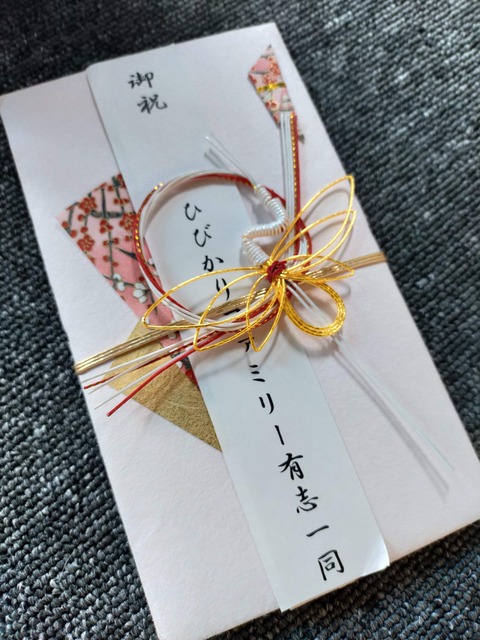 御祝
ひびかりファミリー有志一同